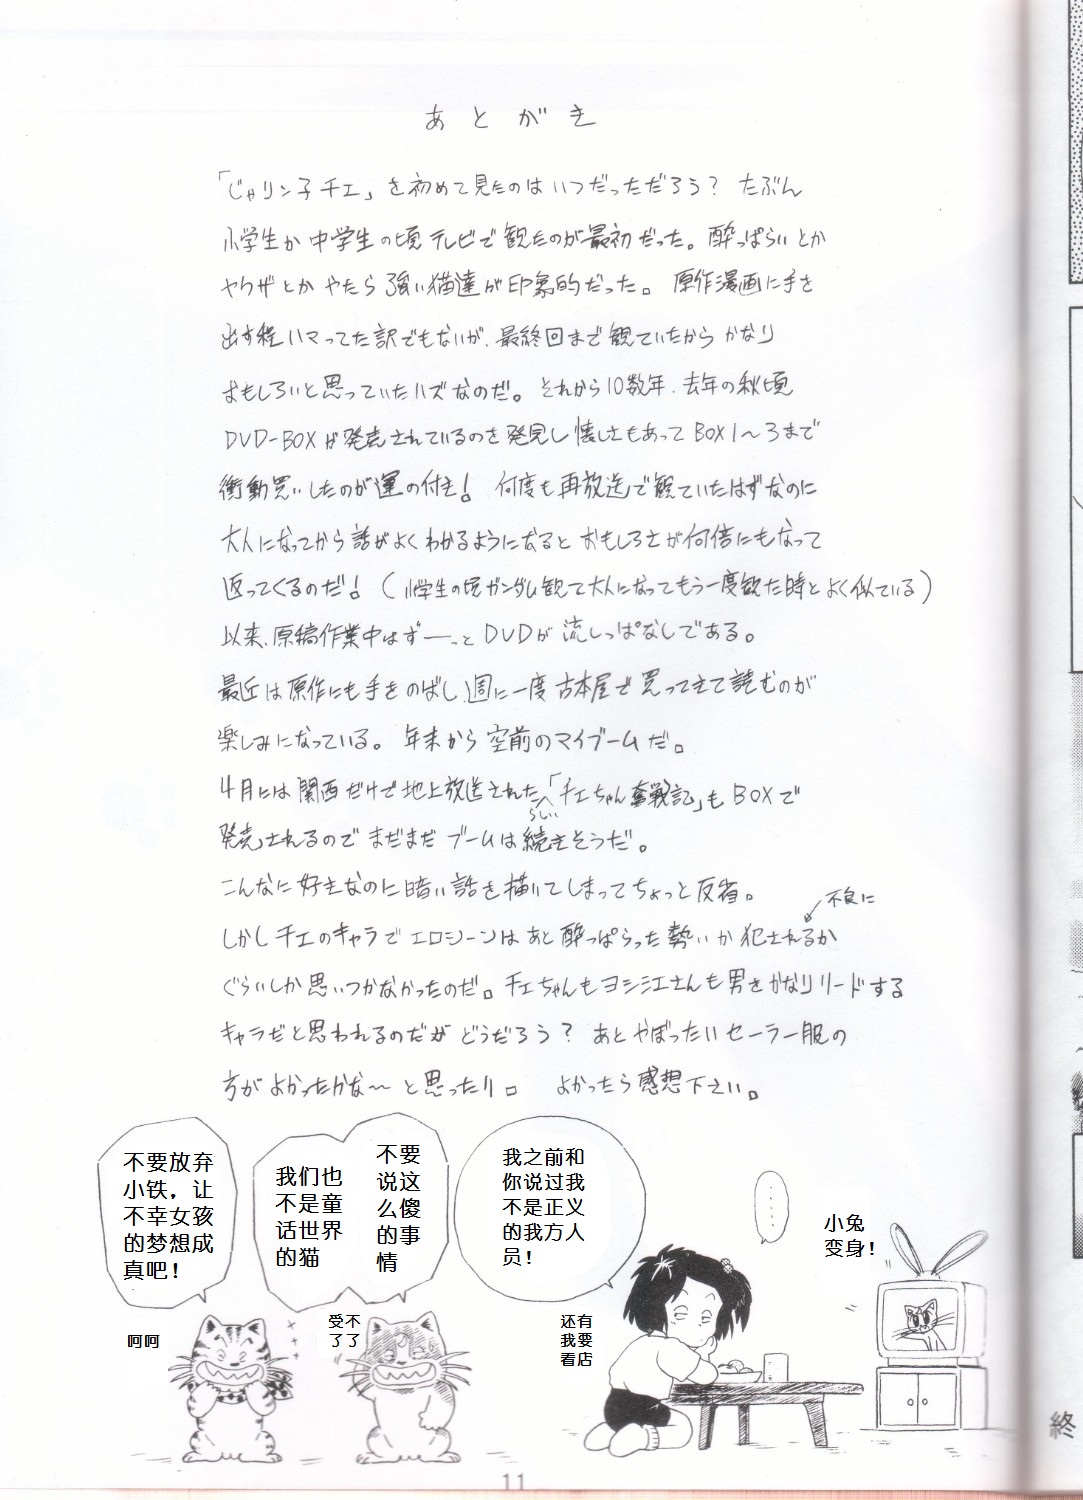 あとがき
「じゃリン子チエ」を初めて見たのはいつだっただろう？ たぶん
小学生か中学生の頃テレビで観たのが最初だった。酔っぱらいとか
ヤクザとかやたら強い猫達が印象的だった。原作漫画に手を
出す程ハマってた訳でもないが、最終回まで観ていたからかなり
おもしろいと思っていたハズなのだ。それから10数年、去年の秋頃
DVD-BOXが発売されているのを発見し懐しさもあってBOX1～3まで
衝動買いしたのが運の付き！ 何度も再放送で観ていたはずなのに
大人になってから話がよくわかるようになるとおもしろさが何倍にもなって
返ってくるのだ！（小学生の頃ガンダム観て大人になってもう一度観た時とよく似ている）
以来、原稿作業中はずーーっとDVDが流しっぱなしである。
最近は原作にも手をのばし、週に一度古本屋で買ってきて読むのが
楽しみになっている。年末から空前のマイブームだ。
4月には関西だけで地上放送されたらしい「チエちゃん奮戦記」もBOXで
発売されるのでまだまだブームは続きそうだ。
こんなに好きなのに暗い話を描いてしまってちょっと反省。
不良に
しかしチエのキャラでエロシーンはあと酔っぱらった勢いか犯されるか
ぐらいしか思いつかなかったのだ。チエちゃんもヨシ江さんも男をかなりリードする
キャラだと思われるのだがどうだろう？ あとやぼったいセーラー服の
方がよかったかな～と思ったり。 よかったら感想下さい。
不要放弃
小铁，让
不幸女孩
的梦想成
真吧！
呵呵
我们也
不是童
话世界
的猫
不要
说这
么傻
的事
情
受不
了了
我之前和
你说过我
不是正义
的我方人
员！
还有
我要
看店
……
小兔
变身！
11
終